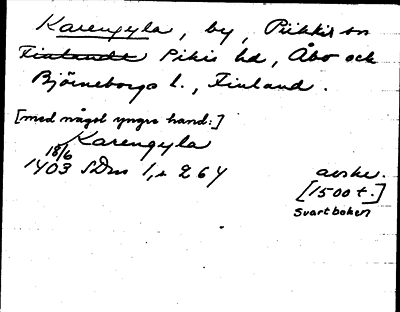 Karengyla, by, Piikkis sn
Finlands Pikis hd, Åbo och
Björneborgs l., Finland.
[med något yngre hand:]
Karengyla
18/6
1403 SDns 1, s 264 avskr.
[1500 t.]
Svartboken